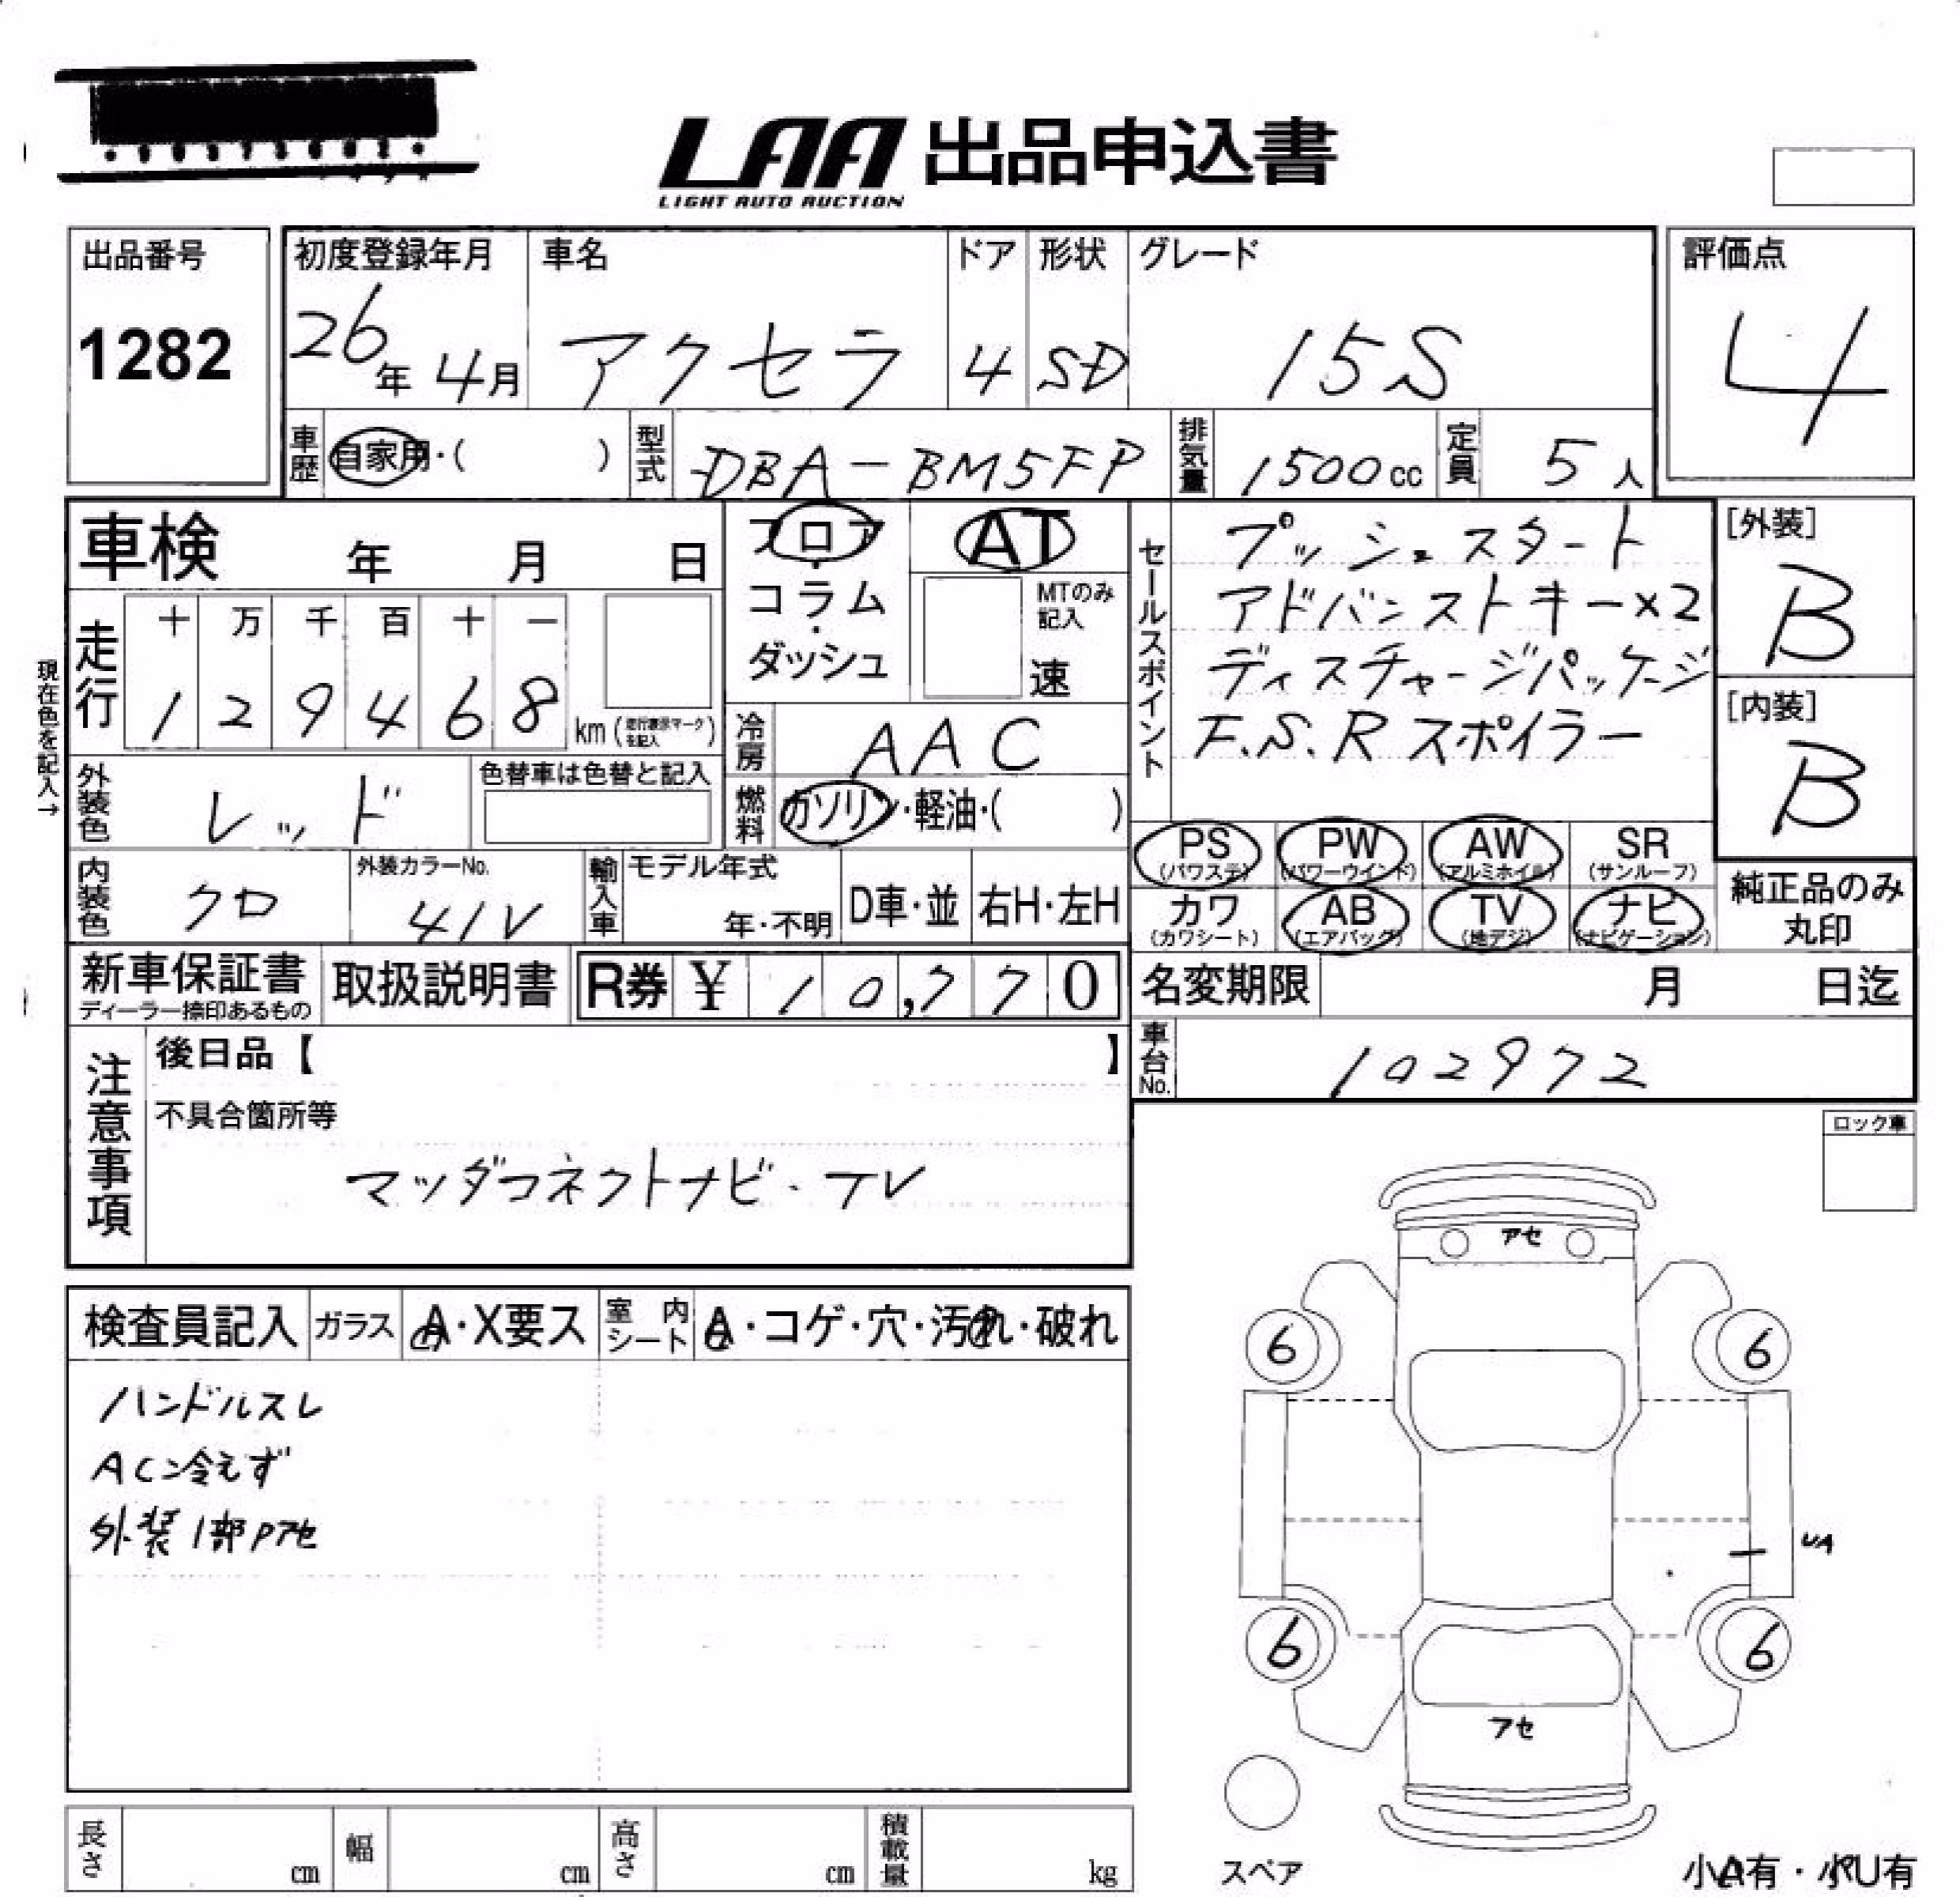 LAA 出品申込書
LIGHT AUTO AUCTION
出品番号
1282
初度登録年月
26年 4月
車名
アクセラ
ドア
4
形状
SD
グレード
15S
評価点
4
車歴 自家用・( )
型式 DBA-BM5FP
排気量 1500cc
定員 5人
車検 年 月 日
フロア・コラム・ダッシュ
AT
MTのみ記入
速
セールスポイント
プッシュスタート
アドバンストキー×2
ディスチャージパッケージ
F.S.Rスポイラー
[外装]
B
[内装]
B
現在色を記入→
走行
十 万 千 百 十 一
1 2 9 4 6 8 km (走行表示マークを記入)
冷房 AAC
外装色 レッド
色替車は色替と記入
燃料 ガソリン・軽油・( )
PS (パワステ)
PW (パワーウインド)
AW (アルミホイル)
SR (サンルーフ)
カワ (カワシート)
AB (エアバッグ)
TV (地デジ)
ナビ (ナビゲーション)
純正品のみ丸印
内装色 クロ
外装カラーNo. 41V
輸入車
モデル年式
年・不明
D車・並
右H・左H
新車保証書
ディーラー捺印あるもの
取扱説明書
R券 ¥ 10,770
名変期限 月 日迄
車台No. 102972
注意事項
後日品【 】
不具合箇所等
マツダコネクトナビ・TV
ロック車
検査員記入
ガラス A・X要ス
室内シート A・コゲ・穴・汚れ・破れ
ハンドルスレ
AC冷えず
外装1部Pアセ
アセ
6
6
UA
6
6
アセ
スペア
長さ cm
幅 cm
高さ cm
積載量 kg
小A有・小U有